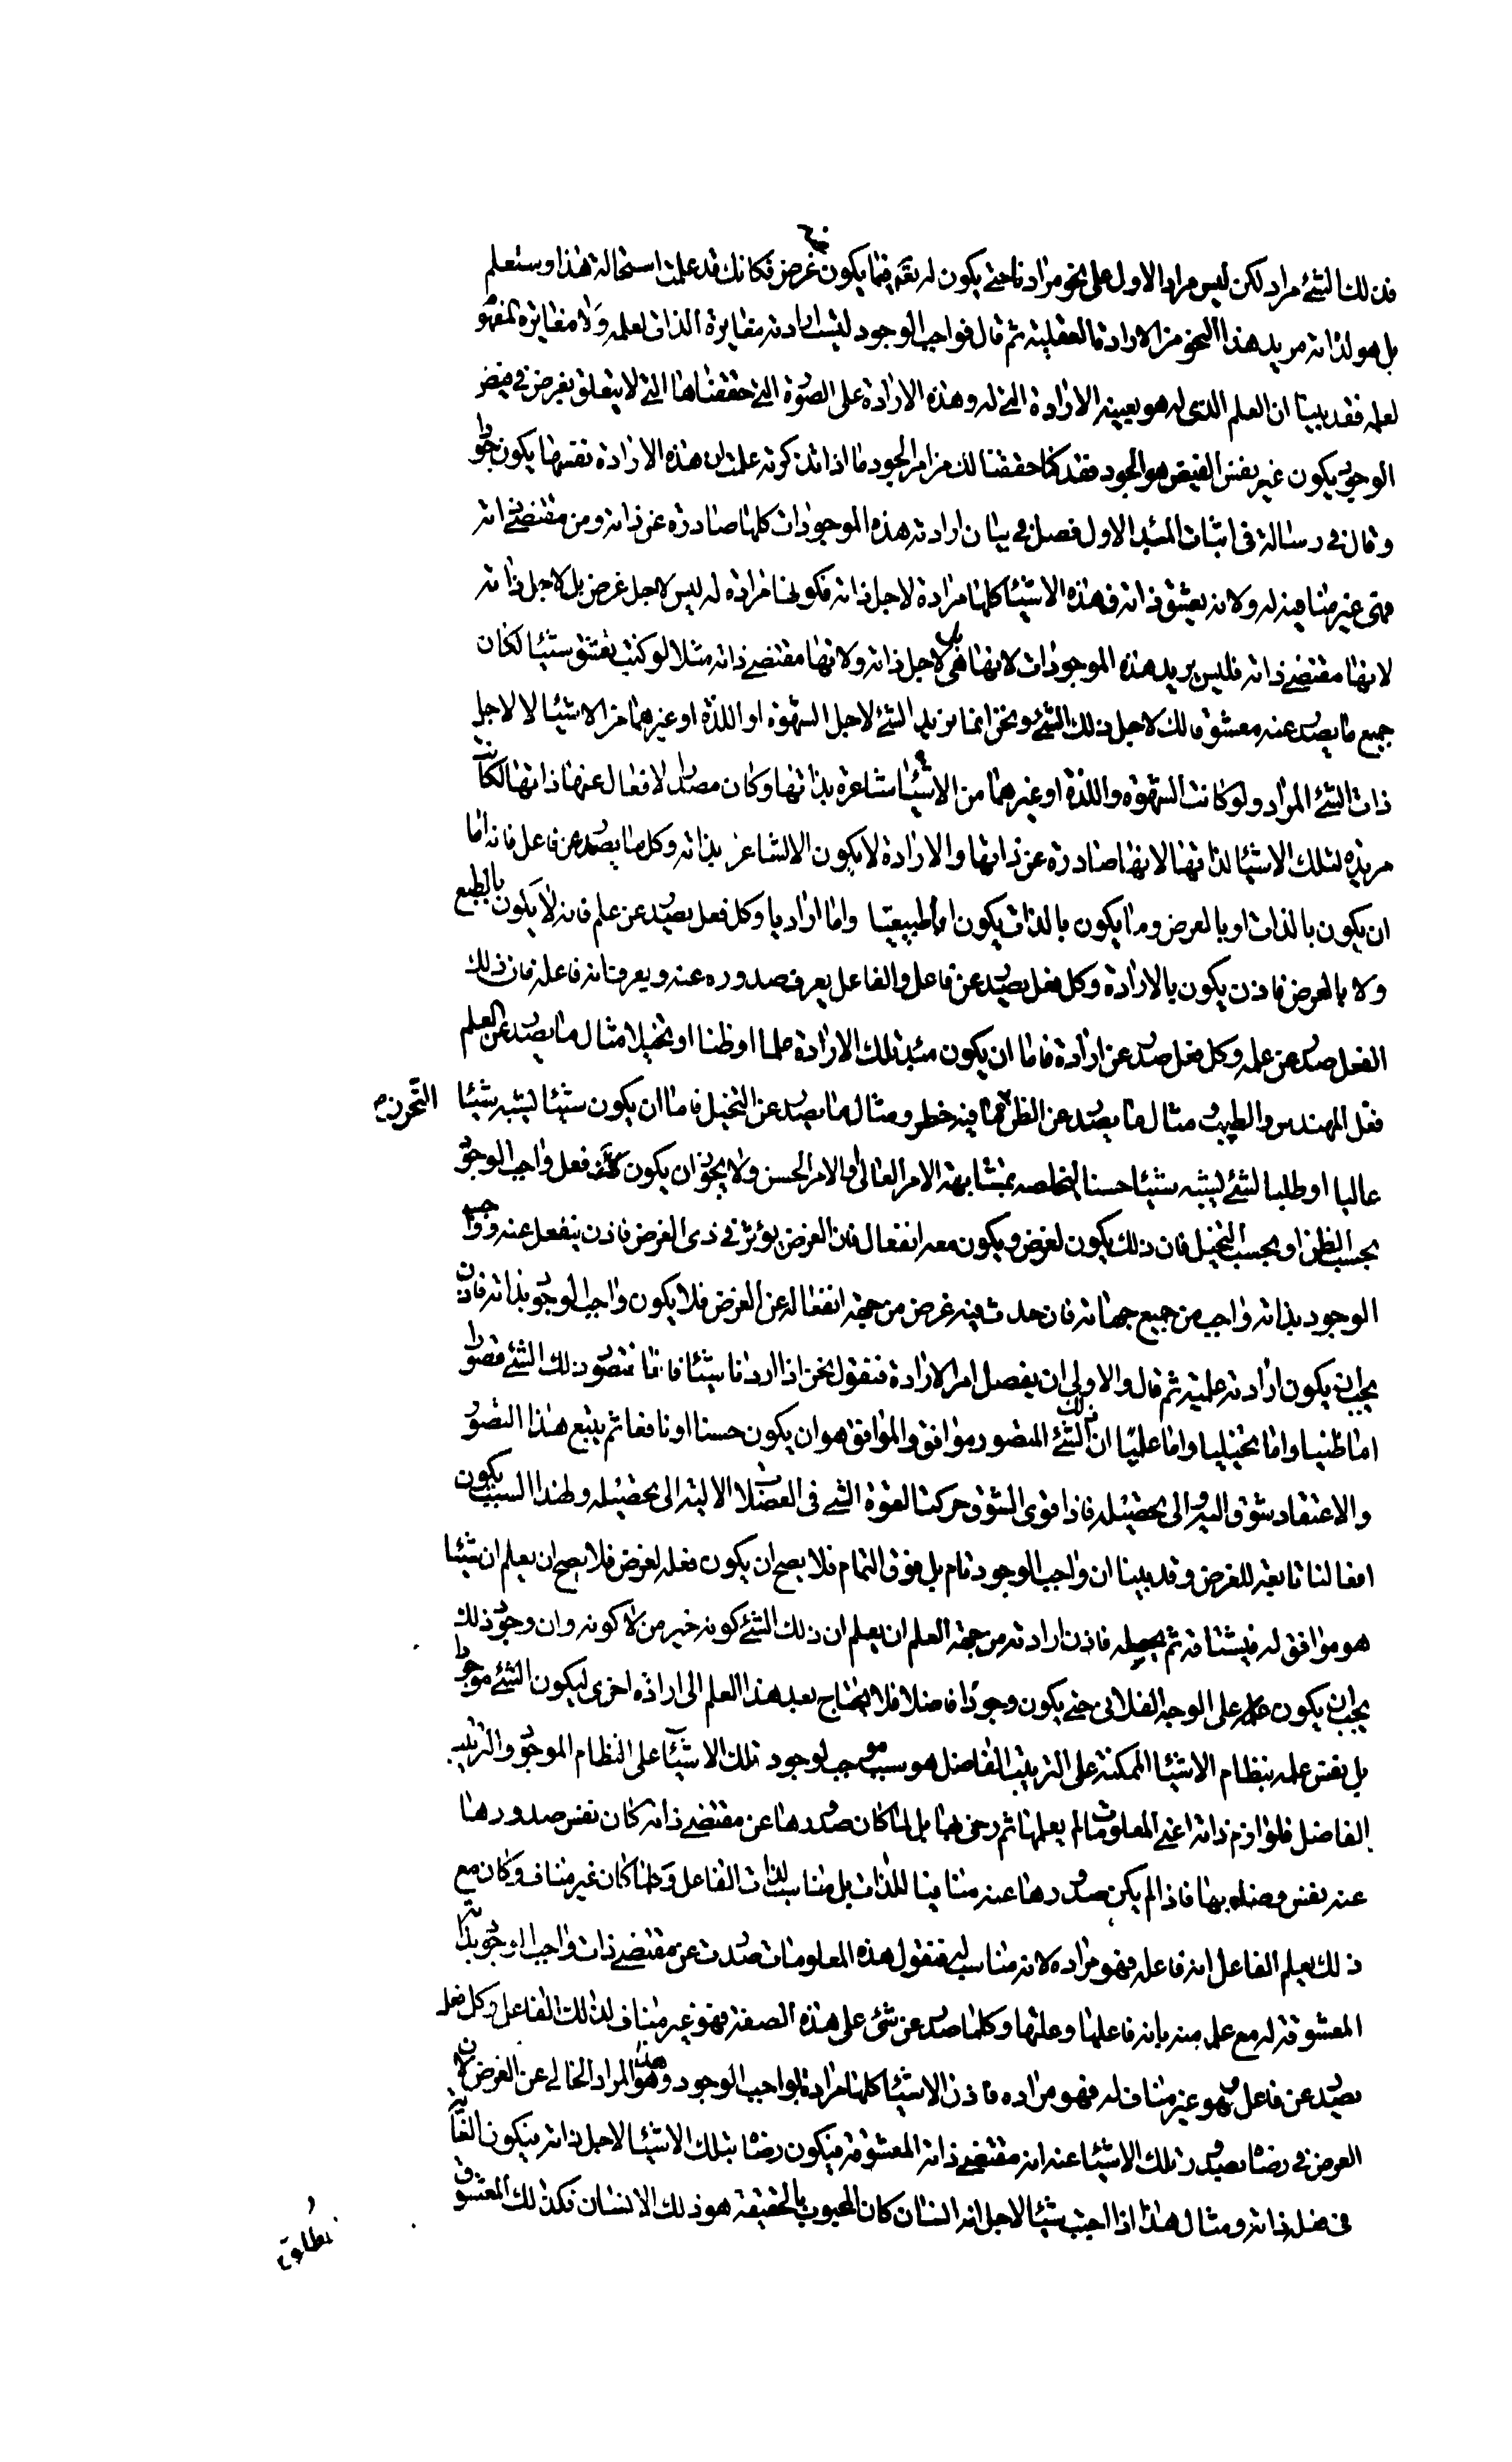 فذلك الشئ مراد لكن ليس مراد الاول على نحو مرادنا حتى يكون له بقه فيما يكون غرض فكانك قد علمت استحالة هذا وستعلم
بل هو لذاته مريد هذا النحو من الارادة العقلية ثم قال فواجب الوجود ليست ارادته مغايرة الذات لعلمه ولا مغايرة لمفهو
لعلمه فقد بينا ان العلم الذى له هو بعينه الارادة التى له وهذه الارادة على الصورة التى حققناها التى لا يتعلق بغرض فى فيض
الوجود يكون غير نفس الفيض هو الجود فقد كنا حققنا لك من امر الجود ما اذا تذكرته علمت ان هذه الارادة نفسها يكون جودا
وقال فى رسالة فى اثبات المبدا الاول فصل فى بيان ارادته هذه الموجودات كلها صادرة عن ذاته ومن مقتضى ذاته
فهى غير منافية له ولانه يعشق ذاته فهذه الاشيا كلها مرادة لاجل ذاته فكونها مرادة له ليس لاجل غرض بل لاجل ذاته
لانها مقتضى ذاته فليس يريد هذه الموجودات لانها هى بل لاجل ذاته ولانها مقتضى ذاته مثلا لو كنت تعشق شيئا لكان
جميع ما يصدر عنه معشوقا لك لاجل ذلك الشئ ونحن انما نريد الشئ لاجل الشهوة او اللذة او غيرهما من الاشيا لا لاجل
ذات الشئ المراد ولو كانت الشهوة واللذة او غيرهما من الاشيا شاعرة بذاتها وكان مصدر الافعال عنها ذاتها لكانت
مريدة لتلك الاشيا لذاتها لانها صادرة عن ذاتها والارادة لا يكون الا لشاعر بذاته وكل ما يصدر عن فاعل فانه اما
ان يكون بالذات او بالعرض وما يكون بالذات يكون اما طبيعيا واما اراديا وكل فعل يصدر عن علم فانه لا يكون بالطبع
ولا بالعرض فاذن يكون بالارادة وكل فعل يصدر عن فاعل والفاعل يعرف صدوره عنه ويعرف انه فاعله فان ذلك
الفعل صدر عن علمه وكل فعل صدر عن ارادة فاما ان يكون مبدا تلك الارادة علما او ظنا او تخيلا مثال ما يصدر عن العلم
فعل المهندس والطبيب مثال ما يصدر عن الظن التحرز مما فيه خطر ومثال ما يصدر عن التخيل فاما ان يكون شيئا ليشبه شيئا
عاليا او طلبا لشئ ليشبه شيئا حسنا لتخلصه بمشابهة الامر العالى او الامر الحسن ولا يجوز ان يكون فعل واجب الوجود
بحسب الظن او بحسب التخيل فان ذلك يكون لغرض ويكون معه انفعال فان الغرض يؤثر فى ذى الغرض فاذن ينفعل عنه وواجب
الوجود بذاته واجب من جميع جهاته فان حدث فيه غرض من جهة انفعاله عن الغرض فلا يكون واجب الوجود بذاته فاذن
يجب ان يكون ارادته علمية ثم قال والاولى ان يفصل امر الارادة فنقول نحن اذا اردنا شيئا فانما نتصور ذلك الشئ تصورا
اما ظنيا واما تخيليا واما علميا ان ذلك الشئ المتصور موافق والموافق هو ان يكون حسنا او نافعا ثم يتبع هذا التصور
والاعتقاد شوق اليه والى تحصيله فاذا قوى الشوق حركت القوة التى فى العضلات الالية الى تحصيله ولهذا السبب يكون
افعالنا تابعة للغرض وقد بينا ان واجب الوجود تام بل فوق التمام فلا يصح ان يكون فعله لغرض فلا يصح ان يعلم ان شيئا
هو موافق له فيشتاقه ثم يحصله فاذن ارادته من جهة العلم ان يعلم ان ذلك الشئ كونه خير من لا كونه وان وجود ذلك
يجب ان يكون على الوجه الفلانى حتى يكون وجودا فاضلا فلا يحتاج بعد هذا العلم الى ارادة اخرى ليكون الشئ موجودا
بل نفس علمه بنظام الاشيا الممكنة على الترتيب الفاضل هو سبب موجب لوجود تلك الاشيآ على النظام الموجود والترتيب
الفاضل فلوازم ذاته اعنى المعلومات لم يعلمها ثم رضى بها بل لما كان صدورها عن مقتضى ذاته كان نفس صدورها
عنه نفس رضاه بها فاذا لم يكن صدورها عنه منافيا للذات بل مناسبا لذات الفاعل وكلما كان غير مناف وكان مع
ذلك يعلم الفاعل انه فاعله فهو مراده لانه مناسب له فنقول هذه المعلومات صدرت عن مقتضى ذات واجب الوجود بذاته
المعشوقة له مع علم منه بانه فاعلها وعلتها وكلما صدر عن شئ على هذه الصفة فهو غير مناف لذلك الفاعل وكل فعل
يصدر عن فاعل وهو غير مناف له فهو مراده فاذن الاشيا كلها مرادة لواجب الوجود وهذا هو المراد الخالى عن الغرض لان
الغرض فى رضاه بصدور تلك الاشيا عنه انه مقتضى ذاته المعشوقة فيكون رضاه بتلك الاشيا لاجل ذاته فيكون الغاية
فى فعله ذاته ومثال هذا اذا احببت شيئا لاجل انسان كان المحبوب بالحقيقة هو ذلك الانسان فكذلك المعشوق